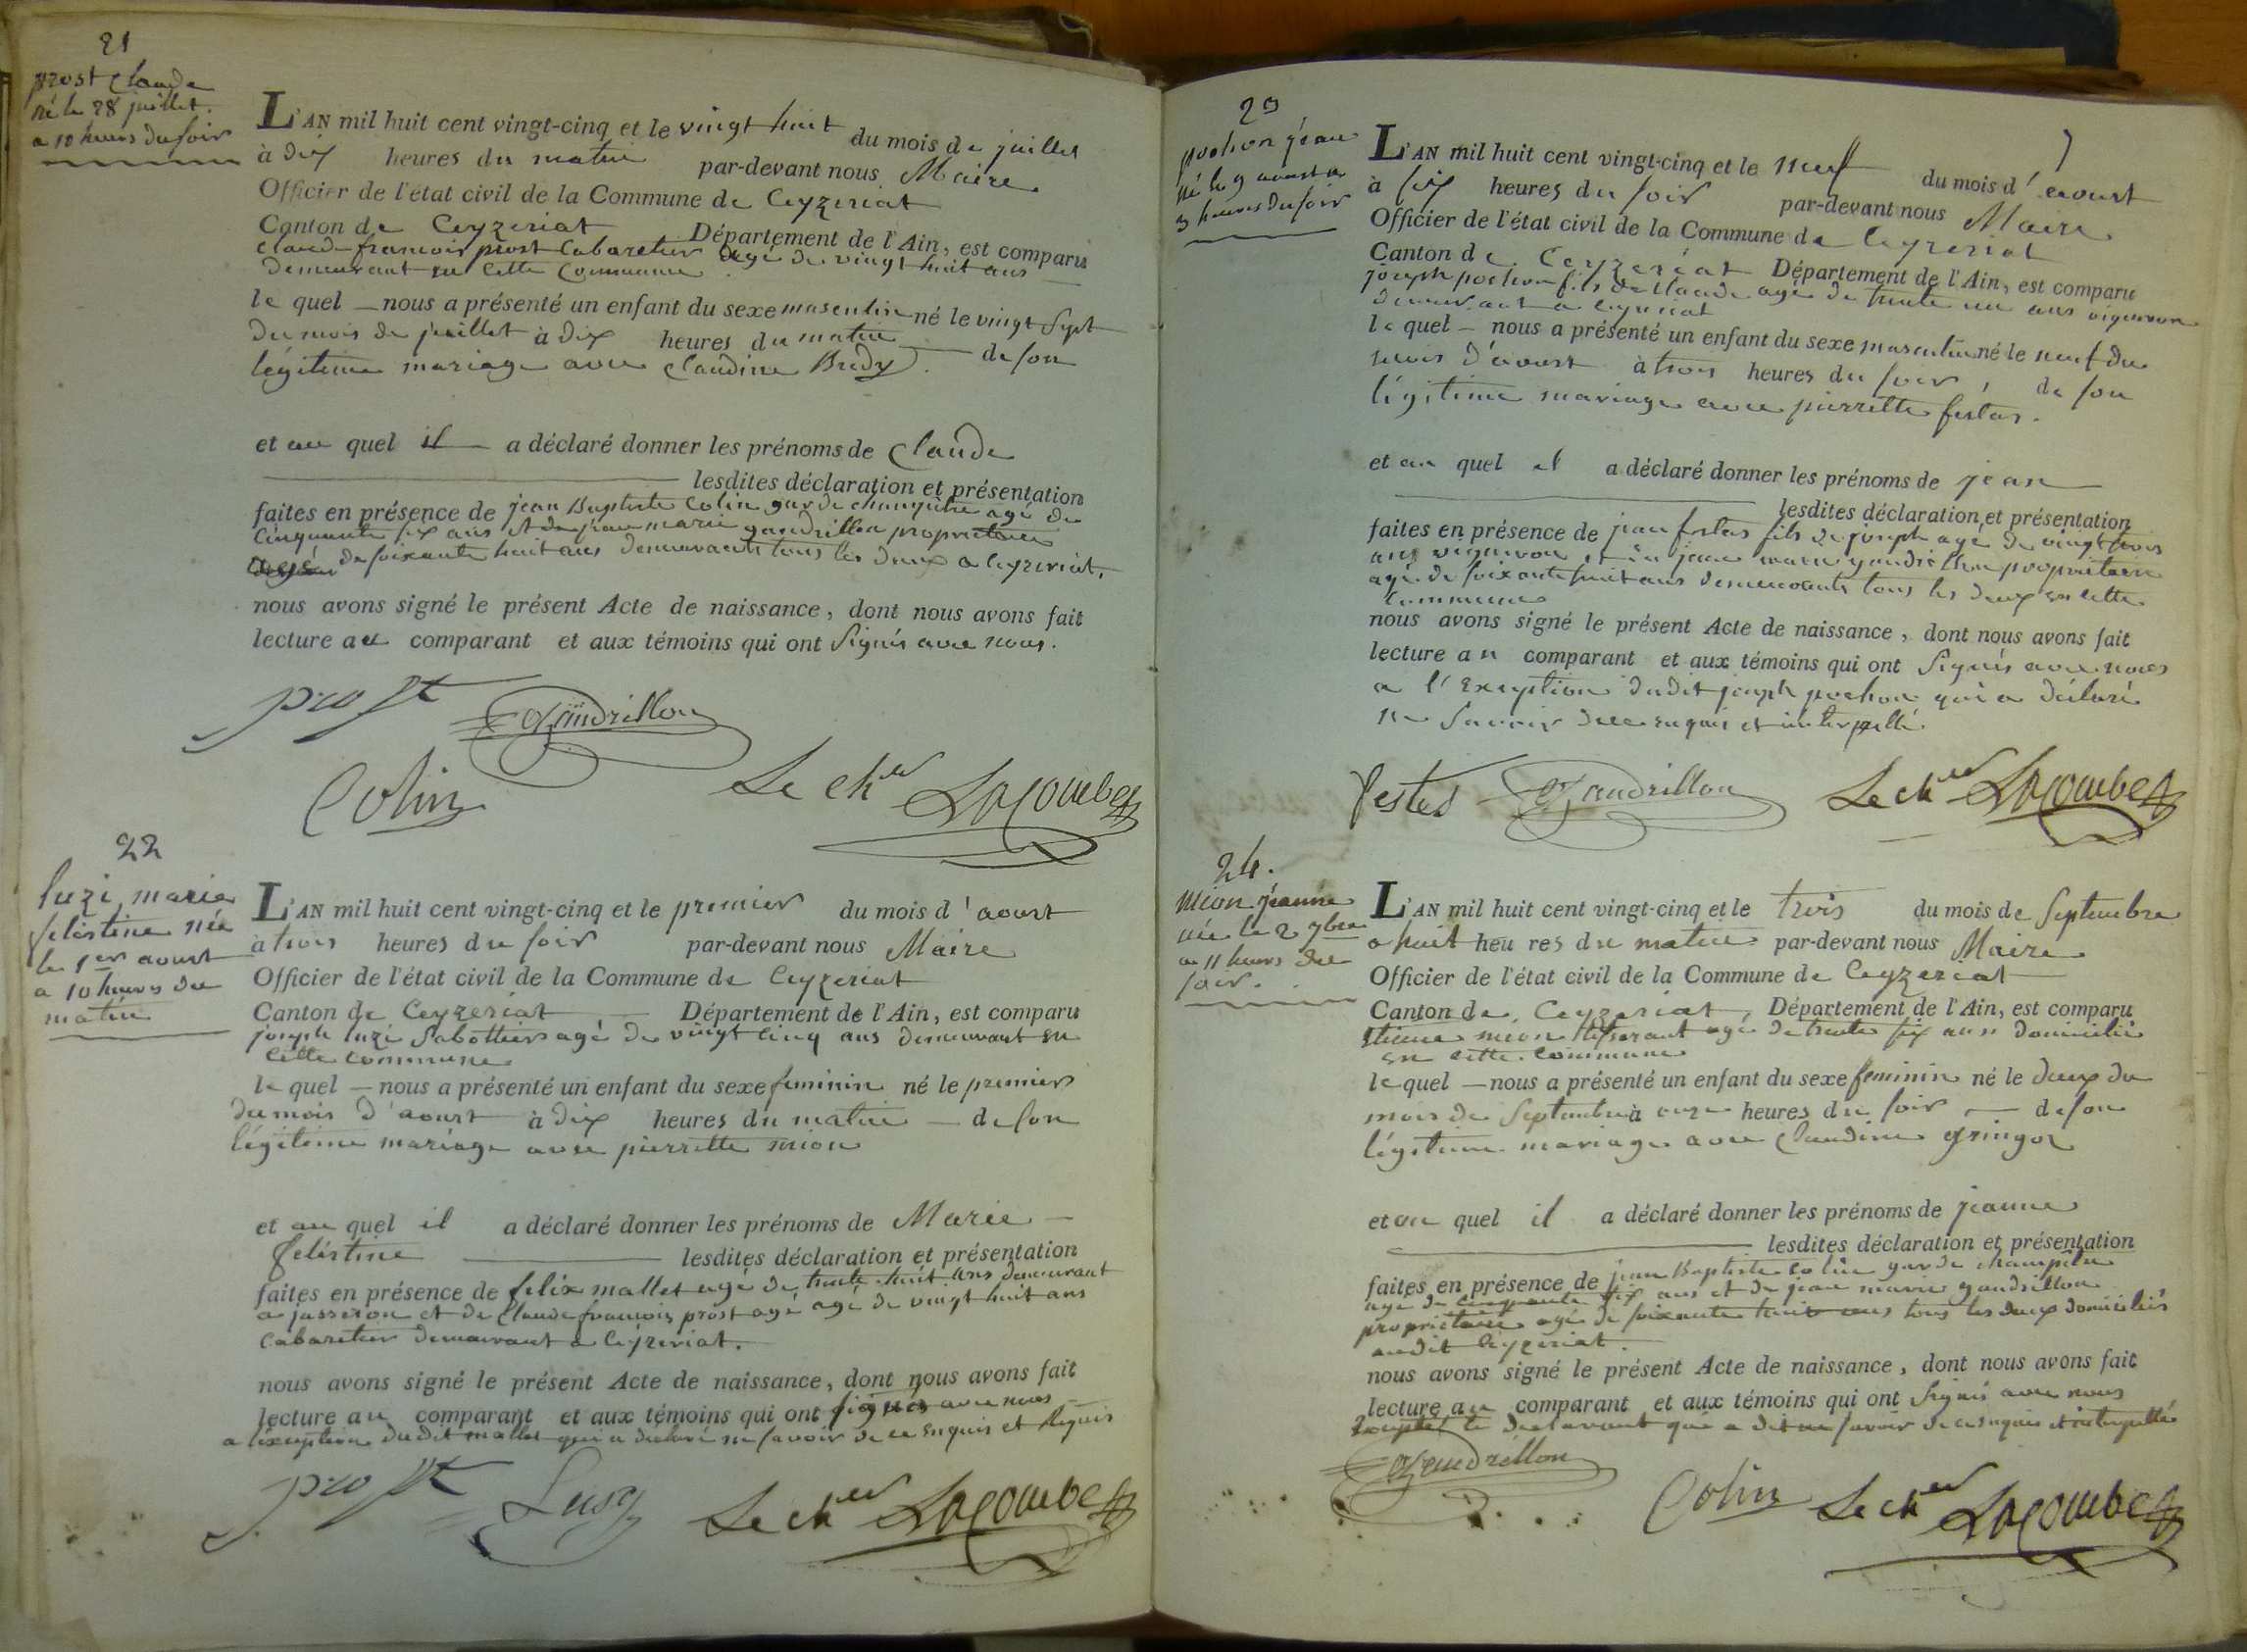 21
prost Claude
né le 28 juillet
a 10 heures du soir
L'AN mil huit cent vingt-cinq et le vingt huit du mois de juillet
à dix heures du matin par-devant nous Maire
Officier de l'état civil de la Commune de Ceyzeriat
Canton de Ceyzeriat Département de l'Ain, est comparu
claude francois prost Cabaretier agé de vingt huit ans
demeurant en cette Commune
le quel — nous a présenté un enfant du sexe masculin né le vingt sept
du mois de juillet à dix heures du matin — de son
légitime mariage avec Claudine Bredy.
et au quel il — a déclaré donner les prénoms de Claude
lesdites déclaration et présentation
faites en présence de jean Baptiste Colin garde champêtre agé de
cinquante six ans et de jean marie gandrillon proprietaire
de soixante huit ans demeurants tous les deux a ceyzeriat.
nous avons signé le présent Acte de naissance, dont nous avons fait
lecture au comparant et aux témoins qui ont signés avec nous.
prost Gandrillon
Colin Le cher Lacombe
22
luzi marie
felestine née
le 1er aoust
a 10 heures du
matin
L'AN mil huit cent vingt-cinq et le premier du mois d'aoust
à trois heures du soir par-devant nous Maire
Officier de l'état civil de la Commune de Ceyzeriat
Canton de Ceyzeriat — Département de l'Ain, est comparu
joseph luzi Sabottier agé de vingt cinq ans demeurant en
cette commune
le quel — nous a présenté un enfant du sexe feminin né le premier
du mois d'aoust à dix heures du matin — de son
légitime mariage avec pierrette mion
et au quel il a déclaré donner les prénoms de Marie —
felestine lesdites déclaration et présentation
faites en présence de felix mallet agé de trente huit ans demeurant
a jasseron et de Claude francois prost agé agé de vingt huit ans
Cabaretier demeurant a ceyzeriat.
nous avons signé le présent Acte de naissance, dont nous avons fait
lecture au comparant et aux témoins qui ont signés avec nous —
a l'exception dudit mallet qui a declaré ne savoir de ce enquis et requis
prost Lusy Le cher Lacombe
23
pochon jean
né le 9 aoust a
3 heures du soir
7
L'AN mil huit cent vingt-cinq et le neuf du mois d'aoust
à six heures du soir par-devant nous Maire
Officier de l'état civil de la Commune de Ceyzeriat
Canton de Ceyzeriat Département de l'Ain, est comparu
joseph pochon fils de claude agé de trente un ans vigneron
demeurant a ceyzeriat
le quel — nous a présenté un enfant du sexe masculin né le neuf du
mois d'aoust à trois heures du soir, de son
légitime mariage avec pierrette festas.
et au quel il a déclaré donner les prénoms de jean
lesdites déclaration et présentation
faites en présence de jean festas fils de joseph agé de vingt trois
ans vigneron et de jean marie gandrillon proprietaire
agé de soixante huit ans demeurants tous les deux en cette
commune
nous avons signé le présent Acte de naissance, dont nous avons fait
lecture au comparant et aux témoins qui ont signés avec nous
a l'exception dudit joseph pochon qui a déclaré
ne savoir de ce enquis et interpellé.
festas Gandrillon Le cher Lacombe
24.
mion jeanne
née le 2 7bre
a 11 heures du
soir.
L'AN mil huit cent vingt-cinq et le trois du mois de Septembre
a huit heures du matin par-devant nous Maire
Officier de l'état civil de la Commune de Ceyzeriat
Canton de Ceyzeriat Département de l'Ain, est comparu
Etienne mion tisserant agé de trente six ans domicilié
en cette commune
le quel — nous a présenté un enfant du sexe feminin né le deux du
mois de Septembre à onze heures du soir — de son
légitime mariage avec Claudine gringoz
et au quel il a déclaré donner les prénoms de jeanne
lesdites déclaration et présentation
faites en présence de jean Baptiste colin garde champêtre
agé de cinquante six ans et de jean marie gandrillon
proprietaire agé de soixante huit ans tous les deux domiciliés
audit Ceyzeriat.
nous avons signé le présent Acte de naissance, dont nous avons fait
lecture au comparant et aux témoins qui ont signés avec nous
Excepté le declarant qui a dit ne savoir de ce enquis et interpellé
Gandrillon
Colin Le cher Lacombe